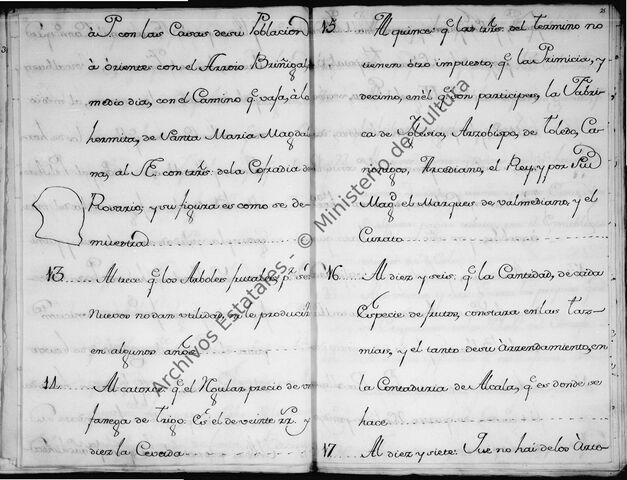 à P. con las Casas de su Poblacion
à òrientes con el Arroio Briñigal,
medio dia, con el Camino q.e va, à la
hermita, de Santa Maria Magdal
na, al N.E. con trrs. de la Cofradia de
Rosario; y su figura es como se de-
muestra
13. Al trece: q.e los Arboles frutales, pr. ser
Nuevos no dan utilidad, y le producen
en algunos años
14. Al catorce: q.e el Regular precio de un
fanega de trigo: Es el de veinte rr. y
diez la Cevada
15 Al quince: q.e las trrs. del termino no
tienen òtro impuesto, q.e la Primicia, y
decimo, en èl q.e son participes, la Fabri-
ca de Yglesia, Arzobispo, de Toledo, Ca-
nonigos, Arcediano, el Rey, y por Su
Mag. el Marques de Valmediano, y el
Curato
16 Al diez y seis: q.e la Cantidad, de cada
Especie de frutos, constara en las taz-
mias, y el tanto de su Arrendamiento, en
la Contaduria de Alcala, q.e es donde se
hace
17 Al diez y siete: Que no hai de los Arte-
Archivos Estatales - © Ministerio de Cultura